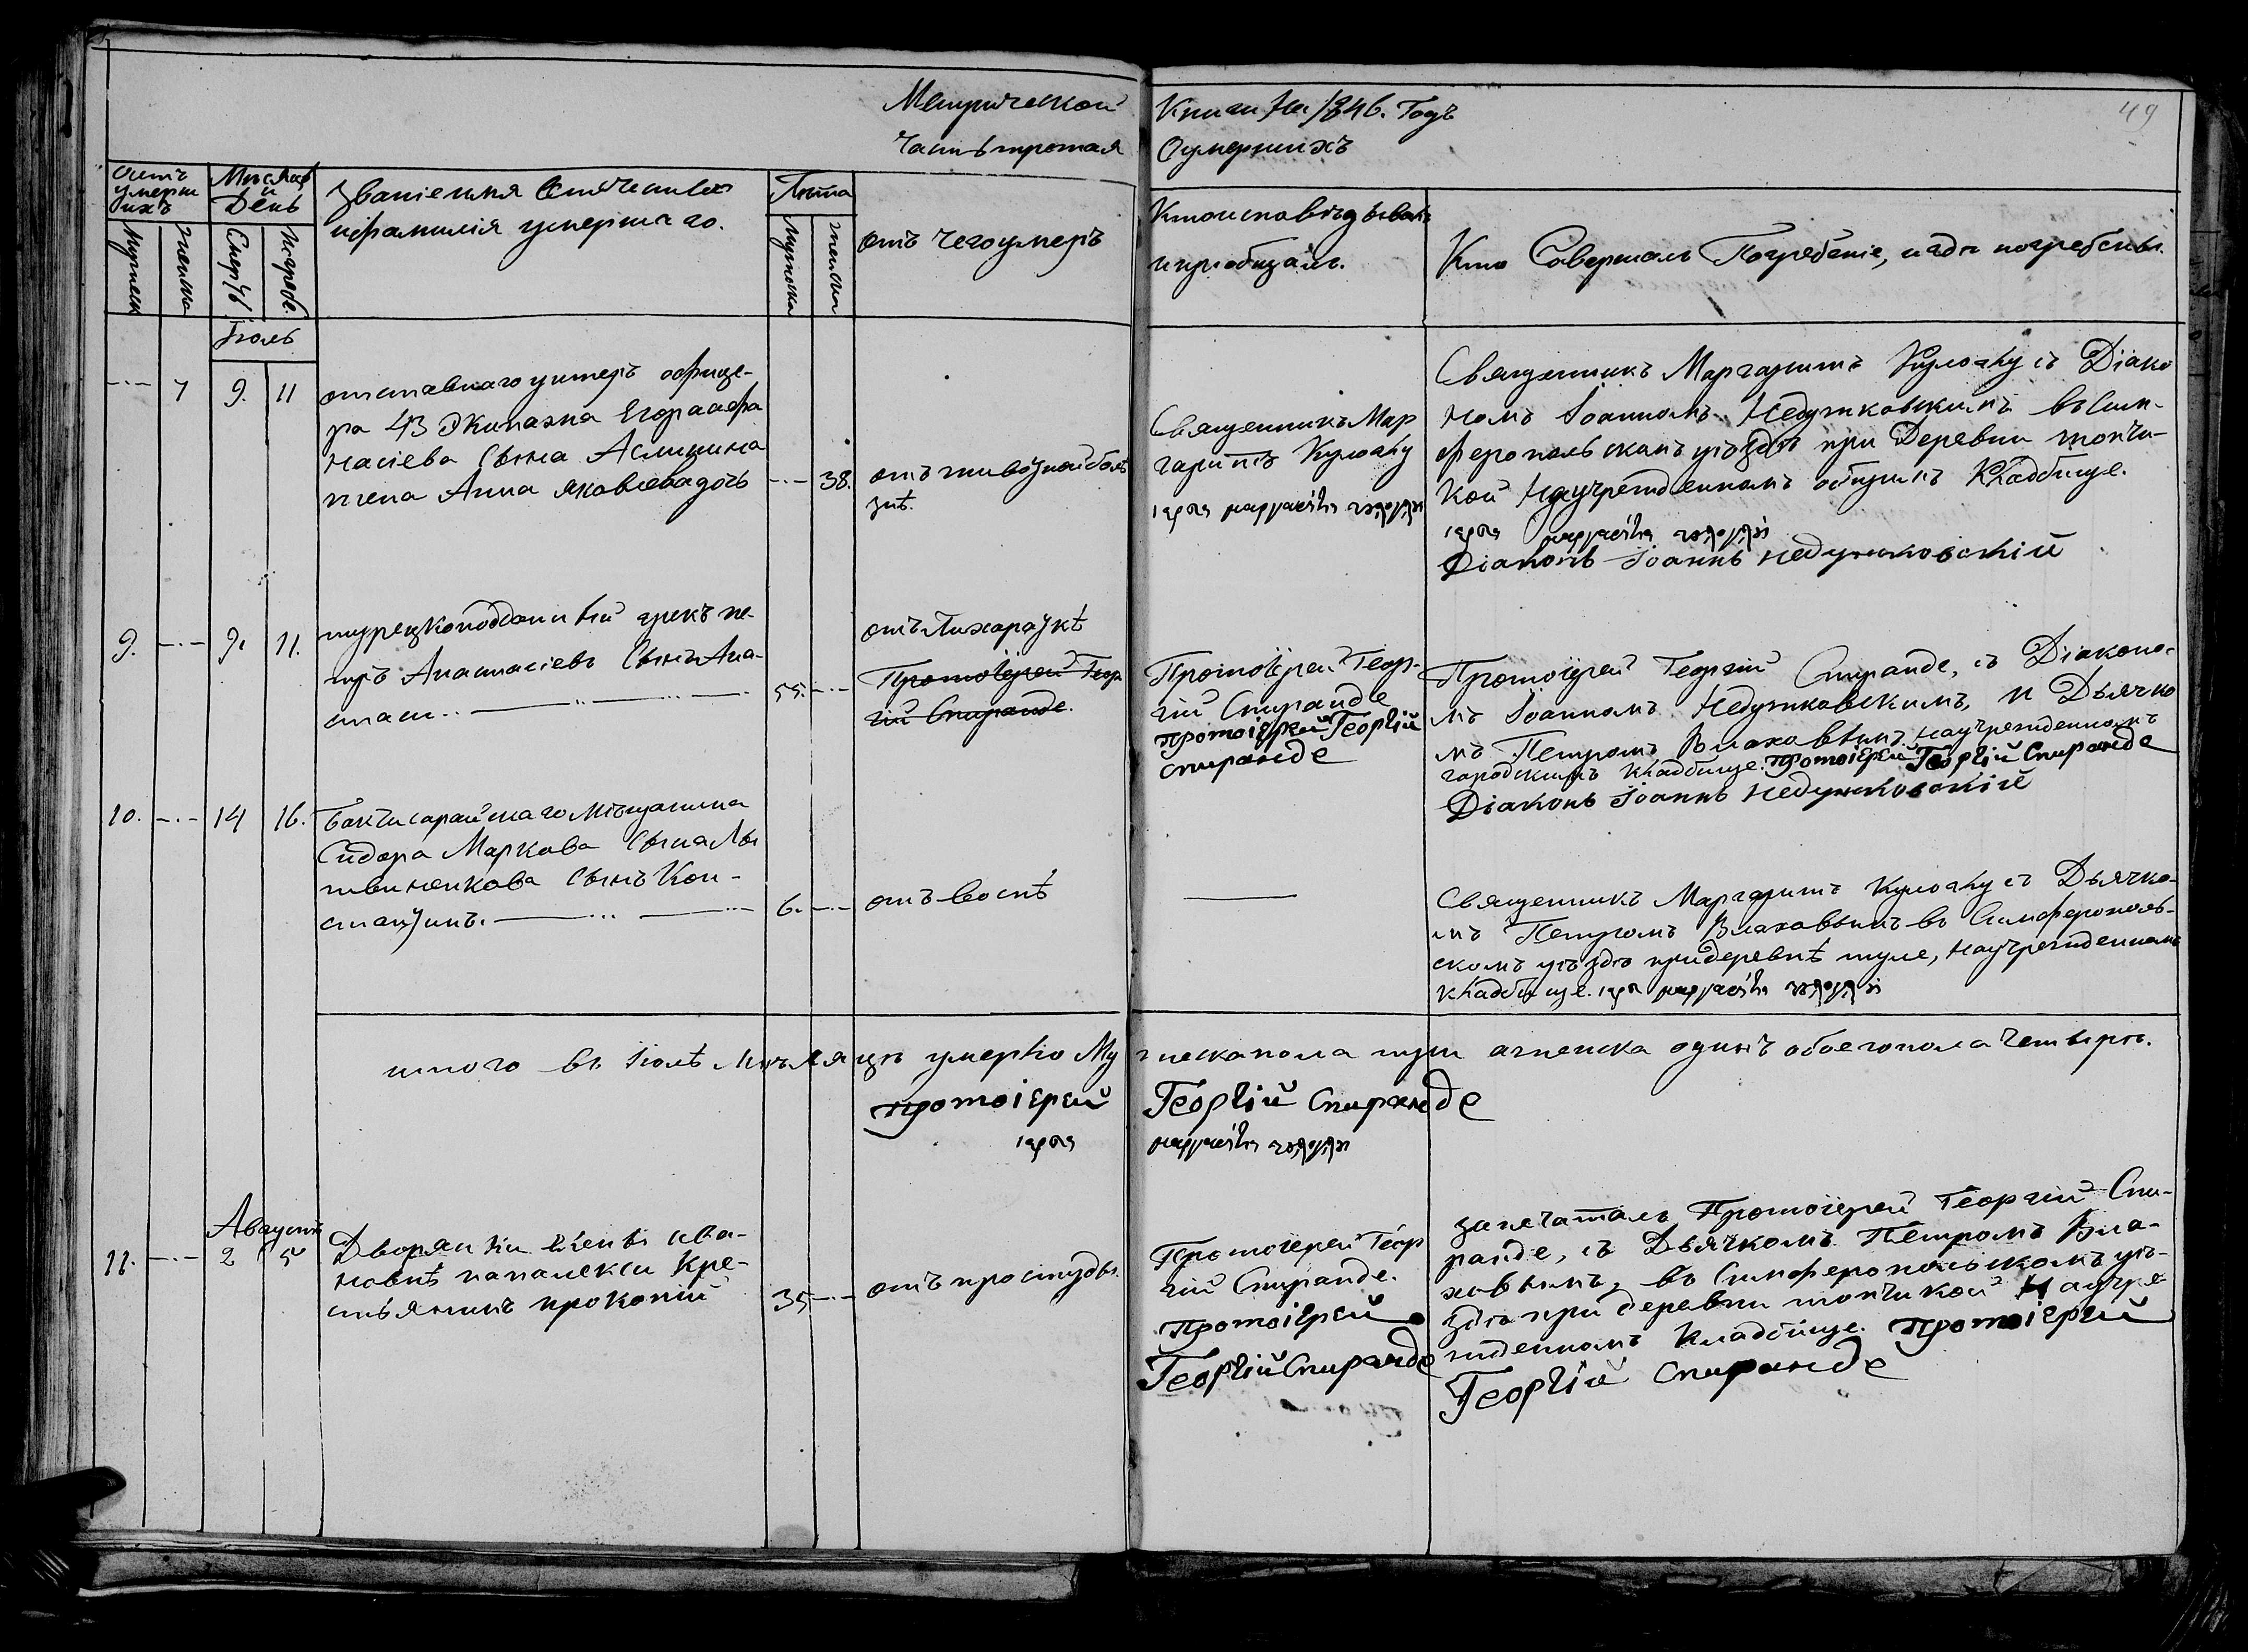 49
Метрической Книги На 1846. Годъ
Часть третая Оумершихъ
Счетъ умершихъ
Мѣсяцъ и День
Званіе имя Отечество
ифамилія умершаго.
Лѣта
отъ чегоумеръ
Ктоисповѣдывалъ
ипріобщалъ.
Кто Совершалъ Погребеніе, игдѣ погребены.
Мужеска
Женска
Смерть
Погребе.
Мужеска
Женска
Іюль
7 9. 11
отставнаго унтеръ офице-
ра 43 Экипажа Егора Афа
насіева Сына
жена Анна Яковлева дочь
38.
отъ
знѣ.
Священникъ Мар
гаритъ
Священникъ Маргаритъ съ Діако
номъ Іоанномъ Недужковскимъ въ Сим-
феропольскомъ уѣздѣ при Деревни
кой научрежденномъ общемъ Кладбище.
Діаконъ Іоаннъ Недужковскій
9. 9. 11.
турецкоподданный грекъ пе-
тръ Анастасіевъ Сынъ Ана-
стаси
55.
отъ Лихарадкѣ
Протоіерей Геор
гій Спиранде.
Протоіерей Геор-
гій Спиранде
протоіерей Георгій
спиранде
Протоіерей Георгій Спиранде, съ Діаконо-
мъ Іоанномъ Недужковскимъ, и Дьячко
мъ Петромъ Влаховымъ научрежденномъ
городскимъ кладбище. протоіерей Георгій Спиранде
Діаконъ Іоаннъ Недужковскій
10. 14 16.
Бакчисарайскаго мѣщанина
Сидора Маркова Сына Ли
твиненкова Сынъ Кон-
стантинъ.
6.
отъ воспѣ
Священникъ Маргаритъ съ Дьячко-
мъ Петромъ Влаховымъ въ Симферополь-
скомъ уѣздѣ придеревнѣ туле, научрежденномъ
кладбище.
итого въ Іюлѣ Мѣсяцѣ умерло Му жескапола три аженска одинъ обоегопола четыре.
протоіерей Георгій Спиранде
Августъ
11. 2 5
Дворянки Елены ива-
новнѣ папалекси Кре-
стьянинъ прокопій
35
отъ простуды
Протоіерей Геор
гій Спиранде.
протоіерей
Георгій Спиранде
запечаталъ Протоіерей Георгій Спи-
ранде, съ Дьячкомъ Петромъ Вла-
ховымъ, въ Симферопольскомъ уѣ-
здѣ при деревни научре
жденномъ Кладбище. протоіерей
Георгій спиранде